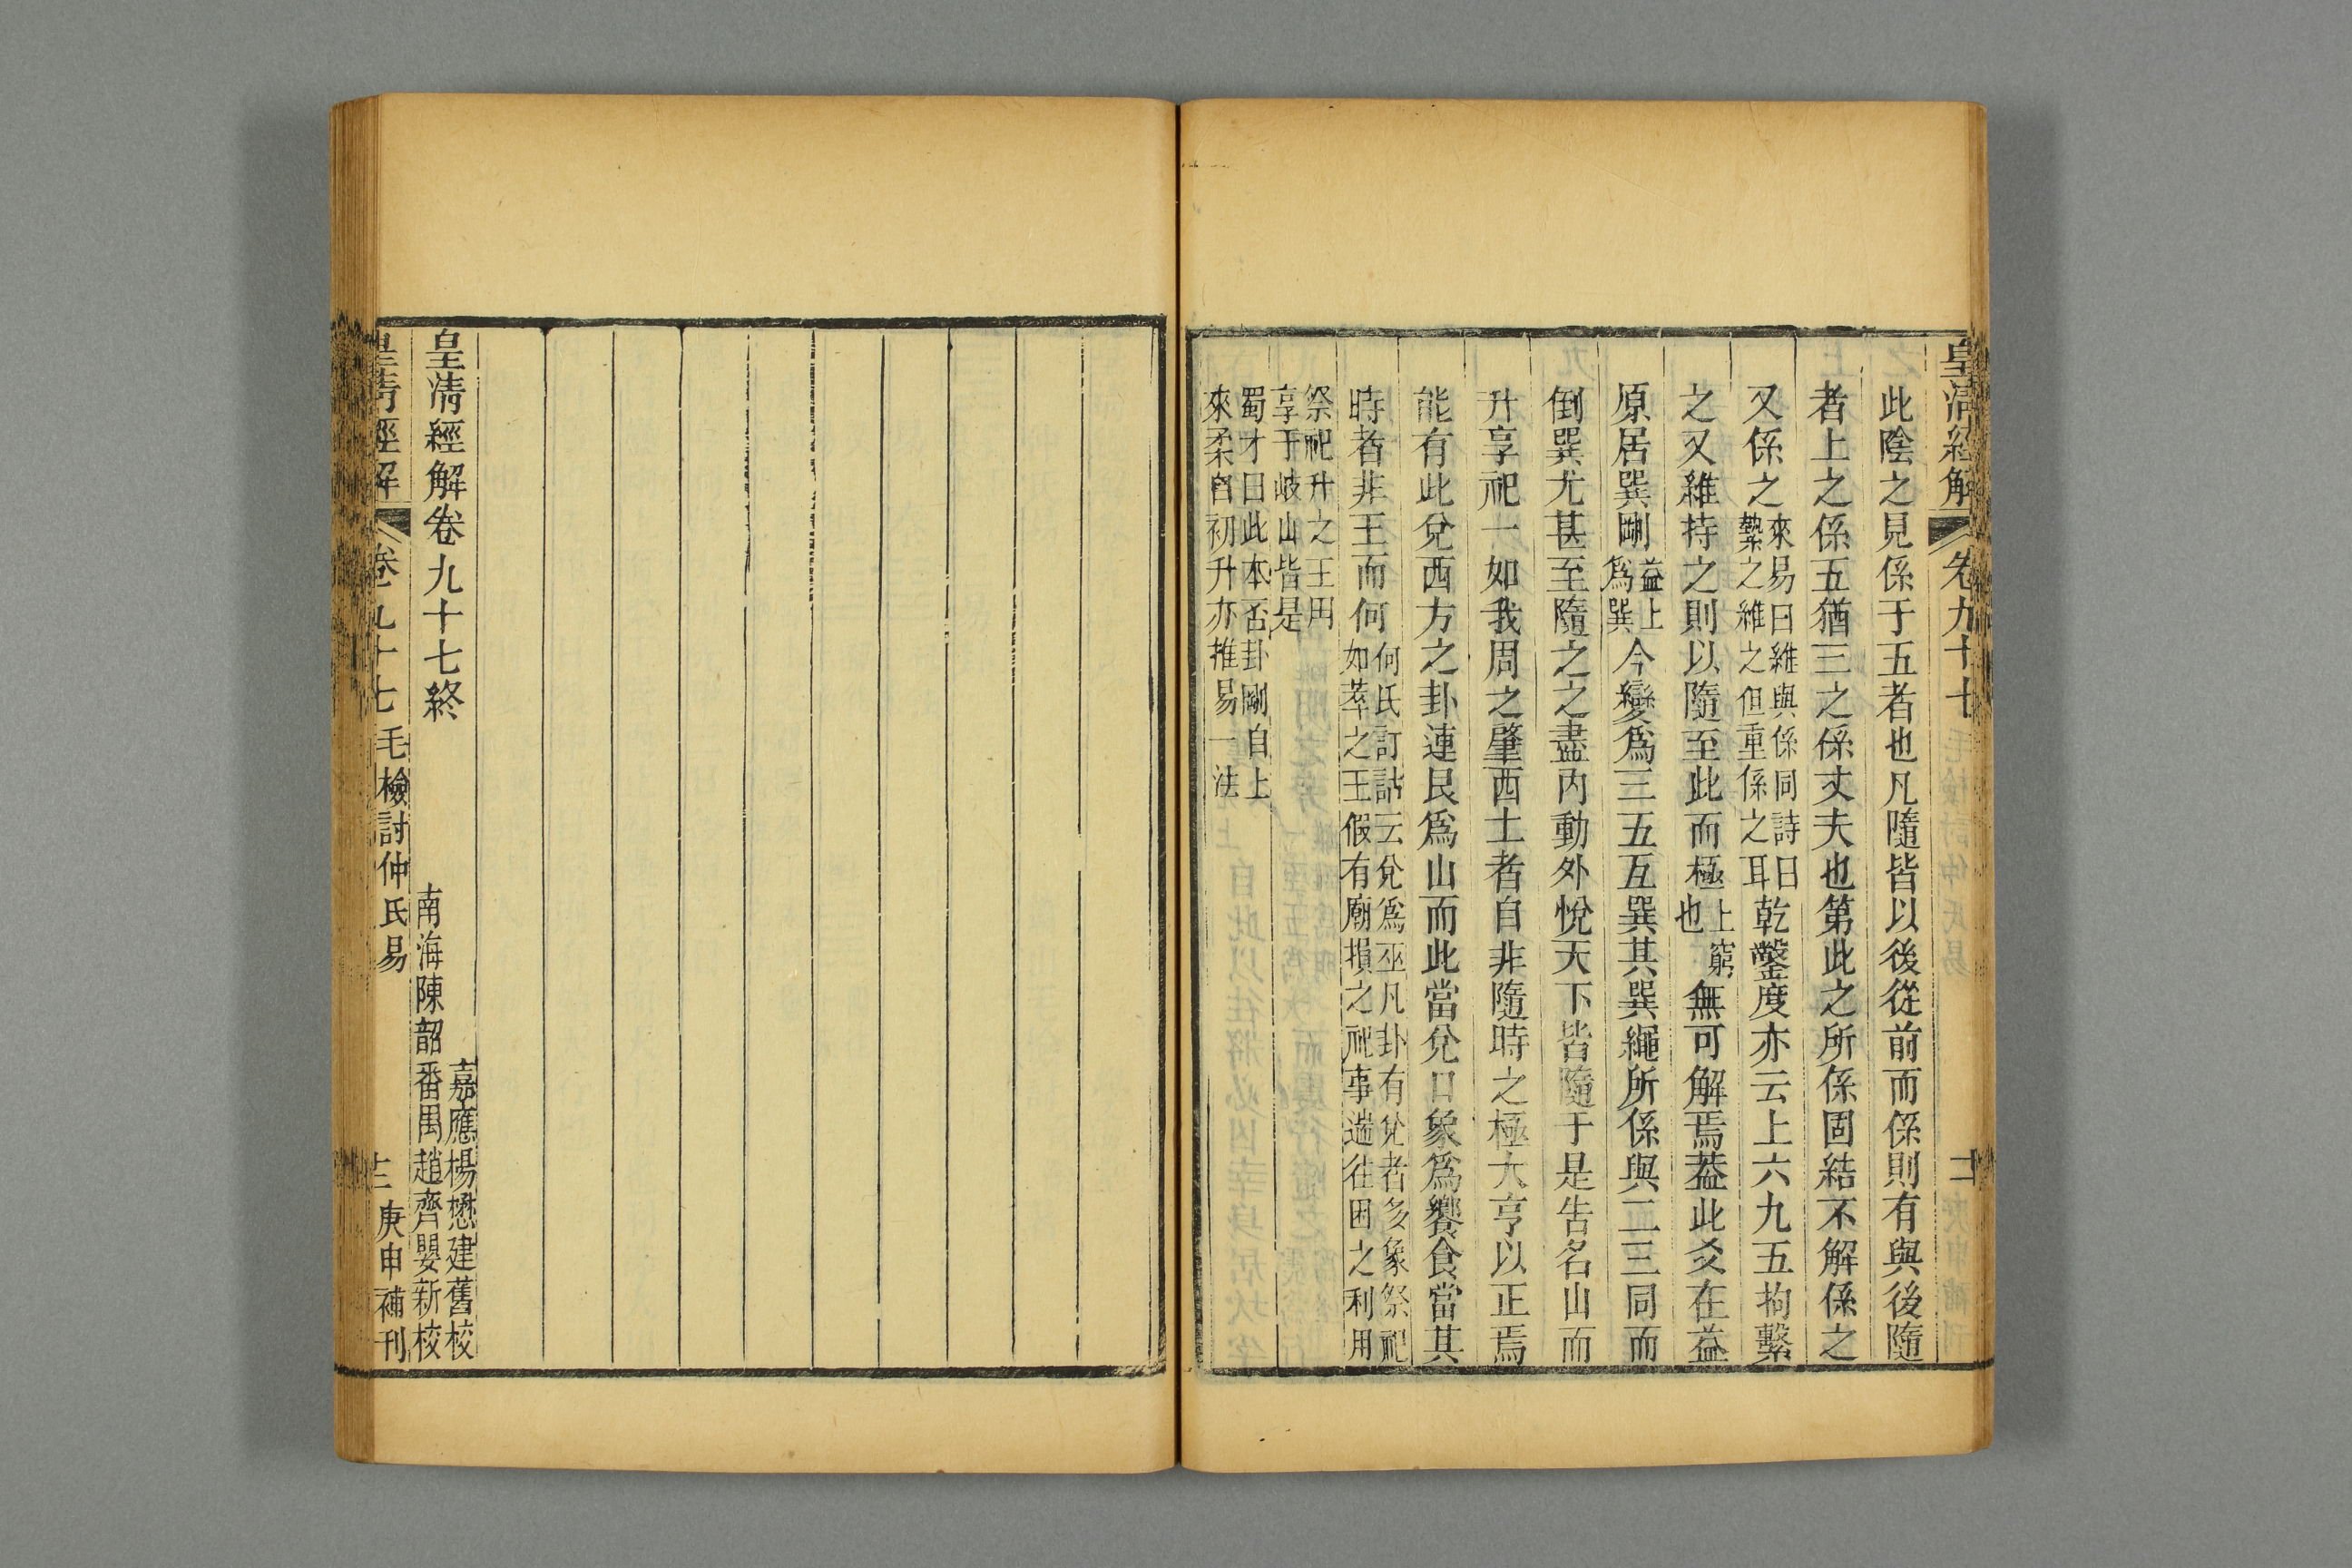 皇清經解 卷九十七
此陰之見係于五者也凡隨皆以後從前而係則有與後隨
者上之係五猶三之係丈夫也第此之所係固結不解係之
又係之來易曰維與係同詩曰縶之維之但重係之耳乾鑿度亦云上六九五拘繫
之又維持之則以隨至此而極上窮也無可解焉葢此爻在益
原居巽剛益上爲巽今變爲三五互巽其巽繩所係與二三同而
倒巽尤甚至隨之之盡內動外悅天下皆隨于是告名山而
升享祀一如我周之肇西土者自非隨時之極大亨以正焉
能有此兌西方之卦連艮爲山而此當兌口象爲饗食當其
時者非王而何何氏訂詁云兌爲巫凡卦有兌者多象祭祀如萃之王假有廟損之祀事遄往困之利用
祭祀升之王用享于岐山皆是
蜀才曰此本否卦剛自上來柔自初升亦推易一法
皇清經解卷九十七終
嘉應楊懋建舊校
南海陳韶番禺趙齊嬰新校
皇清經解 卷九十七 毛檢討仲氏易 庚申補刊